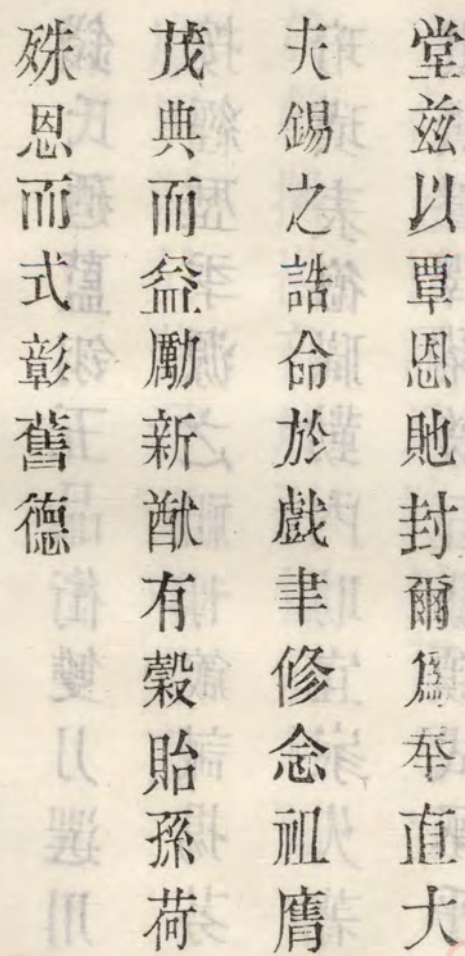 堂兹以覃恩貤封爾爲奉直大
夫錫之誥命於戲聿修念祖膺
茂典而益勵新猷有穀貽孫荷
殊恩而式彰舊德